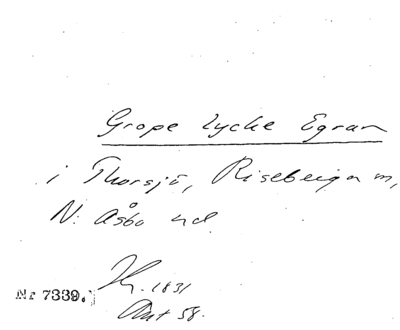 Grope Lycke Egran
i Thorsjö, Riseberga m,
N: Åsbo hd
1831
Nr 7339.
Ant 58.